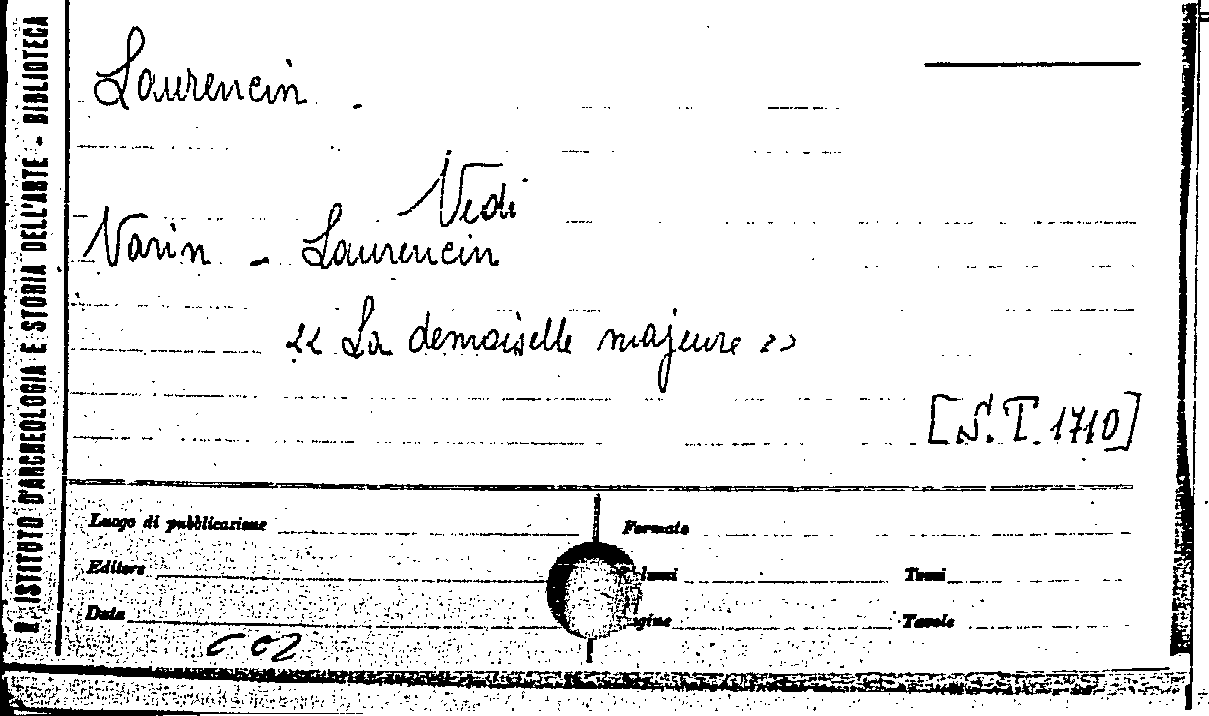 R. ISTITUTO D'ARCHEOLOGIA E STORIA DELL'ARTE - BIBLIOTECA
Laurencin.
Vedi
Varin - Laurencin
<< La demoiselle majeure >>
[S.T. 1710]
Luogo di pubblicazione
Formato
Editore
lumi
Tomi
Data
gine
Tavole